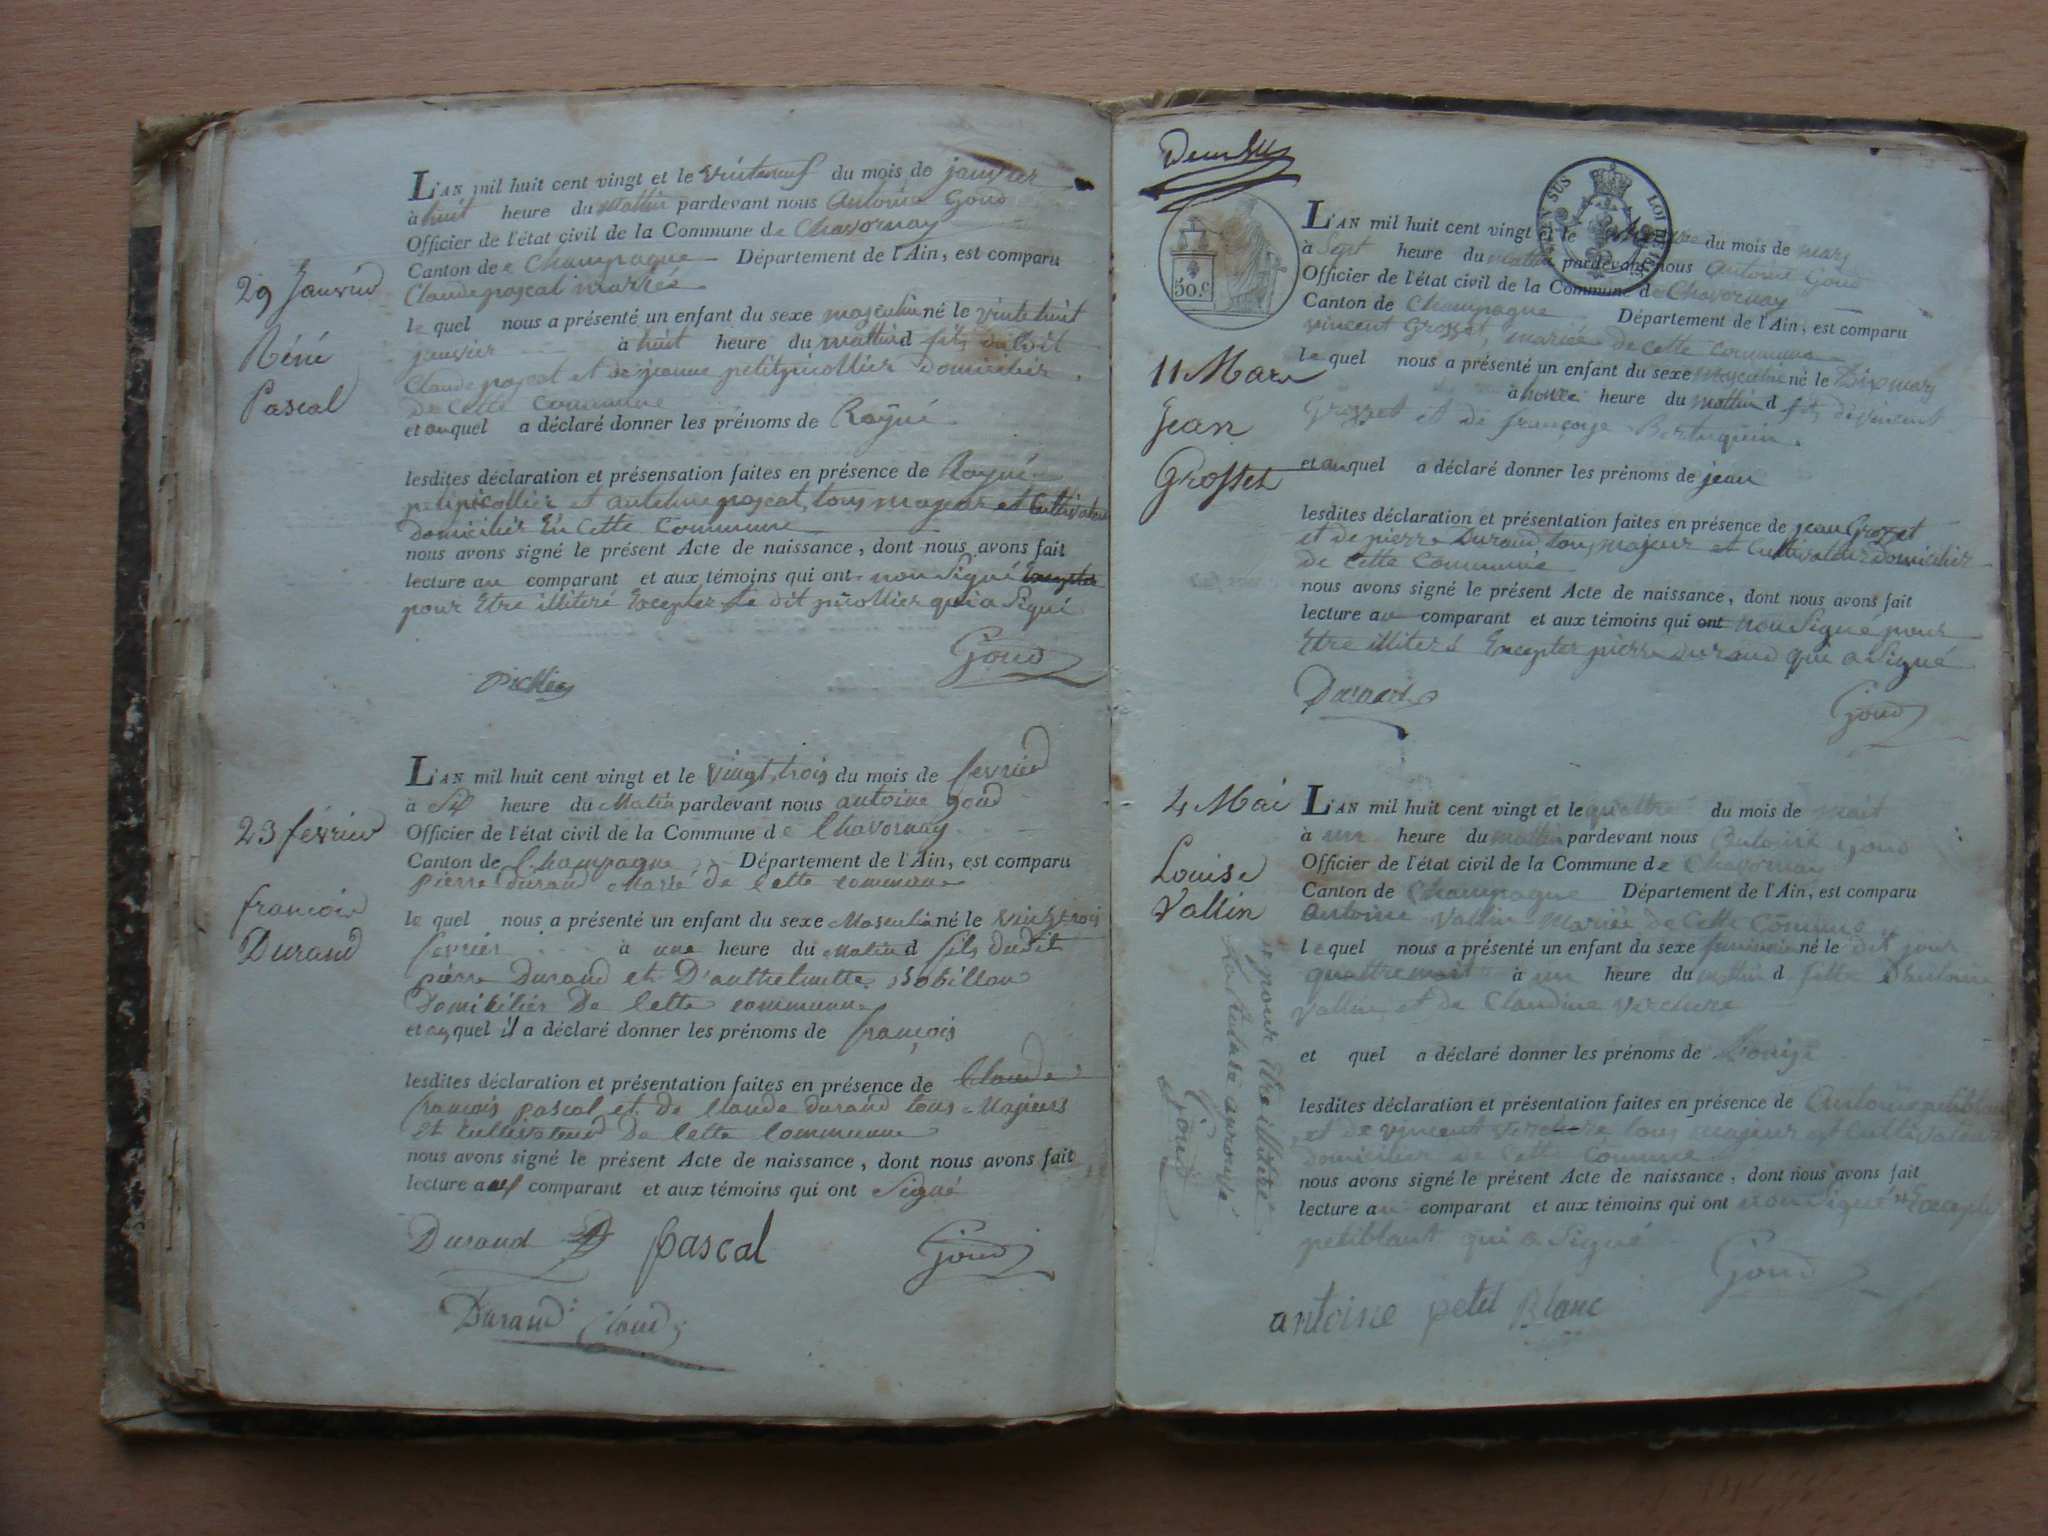 29 Janvier
Réné
Pascal
L'AN mil huit cent vingt et le vintneuf du mois de janvier
à huit heure du mattin pardevant nous Antoine Goud
Officier de l'état civil de la Commune de Chavornay
Canton de Champagne Département de l'Ain, est comparu
Claude pascal mariée
lequel nous a présenté un enfant du sexe masculin né le vinte huit
janvier à huit heure du mattin d fils du dit
Claude pascal et de jeanne petitpicollier Domicilier
De Cette Commune
et auquel a déclaré donner les prénoms de Rayné
lesdites déclaration et présensation faites en présence de Rayné
petipicollier et antelme pascal, tous majeur et Cultivateur
domicilier En Cette Commune
nous avons signé le présent Acte de naissance, dont nous avons fait
lecture au comparant et aux témoins qui ont non Signé Excepter
pour Etre illiteré Excepter Le dit picollier qui a Signé
Goud
23 fevrier
françois
Durand
L'AN mil huit cent vingt et le vingt, trois du mois de fevrier
à Six heure du Matin pardevant nous antoine goud
Officier de l'état civil de la Commune de Chavornay
Canton de Champagne Département de l'Ain, est comparu
pierre durand Marié de Cette commune
lequel nous a présenté un enfant du sexe Masculin né le vingt trois
fevrier à une heure du Matin d fils dudit
pierre Durand et D'anthelmette Bobillon
Domiciliés De Cette commune
et auquel il a déclaré donner les prénoms de françois
lesdites déclaration et présentation faites en présence de Claude
francois pascal et de Claude durand tous Majeurs
et Cultivateur De Cette Commune
nous avons signé le présent Acte de naissance, dont nous avons fait
lecture aux comparant et aux témoins qui ont Signé
Durand pascal Goud
Durand Claude
LOI DE
50.c
11 Mars
Jean
Grosset
L'AN mil huit cent vingt et le du mois de mars
à Sept heure du mattin pardevant nous Antoine Goud
Officier de l'état civil de la Commune de Chavornay
Canton de Champagne Département de l'Ain, est comparu
vincent Grosset, mariée de cette commune
lequel nous a présenté un enfant du sexe masculin né le Dix mars
à honze heure du mattin d fils de vincent
Grosset et de françoise Bertuquin.
et auquel a déclaré donner les prénoms de jean
lesdites déclaration et présentation faites en présence de jean Grosset
et de pierre Durand tous majeur et Cultivateur domicilier
de Cette Commune
nous avons signé le présent Acte de naissance, dont nous avons fait
lecture au comparant et aux témoins qui ont non Signé pour
Etre illiteré Excepter pierre durand qui a Signé
Durand Goud
4 Mai
Louise
Vallin
L'AN mil huit cent vingt et le quattre du mois de mait
à un heure du mattin pardevant nous Antoine goud
Officier de l'état civil de la Commune de Chavornay
Canton de Champagne Département de l'Ain, est comparu
Antoine Vallin Mariée de Cette Commune
lequel nous a présenté un enfant du sexe feminin né le dit jour
quattre mait à un heure du mattin d fille D'antoine
Vallin et de Claudine Verchere
et quel a déclaré donner les prénoms de Louise
lesdites déclaration et présentation faites en présence de Antoine petiblanc
et de vincent Verchere tous majeur et Cultivateur
domicilier de Cette Commune
nous avons signé le présent Acte de naissance, dont nous avons fait
lecture au comparant et aux témoins qui ont non Signé Excepter
petiblant qui a Signé
Goud
antoine petit Blanc
pour Etre illitere
Goud